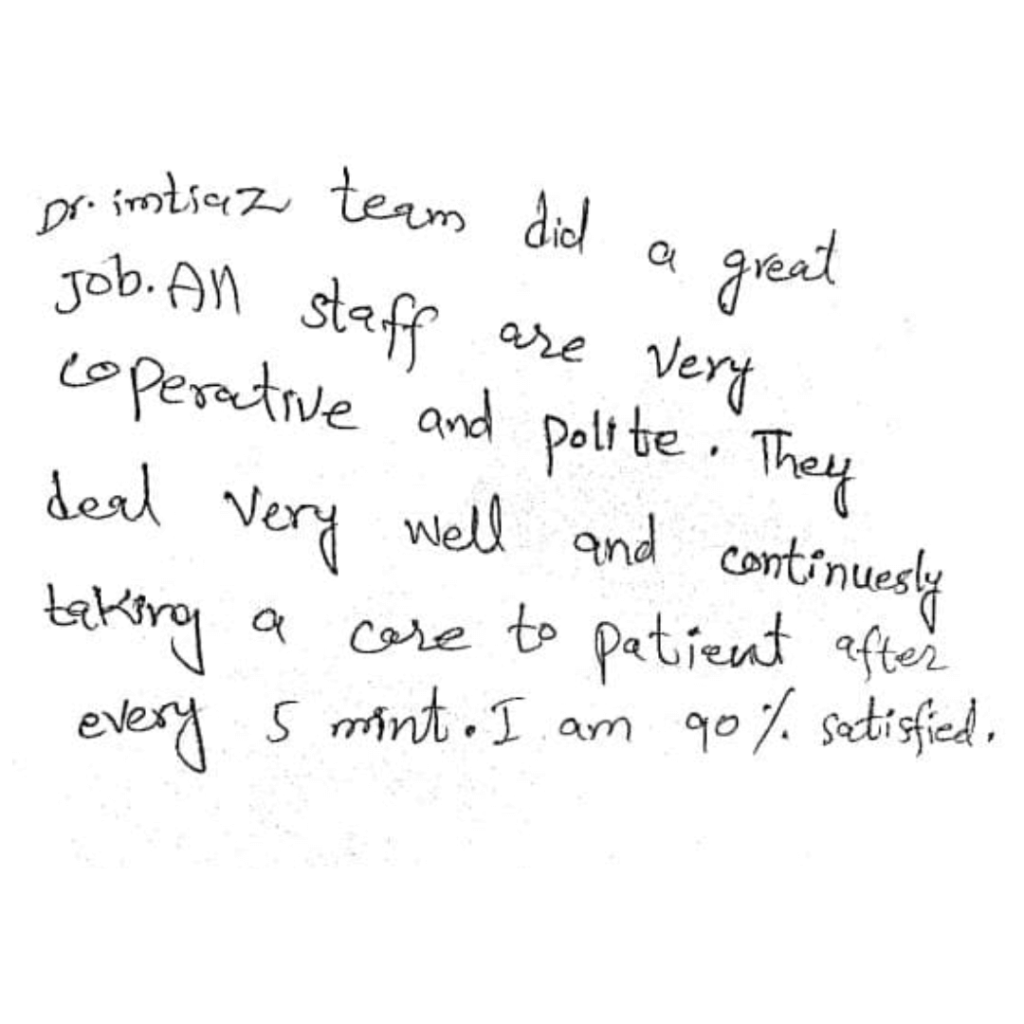 Dr. imtiaz team did a great
Job. All staff are very
coperative and polite. They
deal very well and continuesly
taking a care to patient after
every 5 mint. I am 90% satisfied.